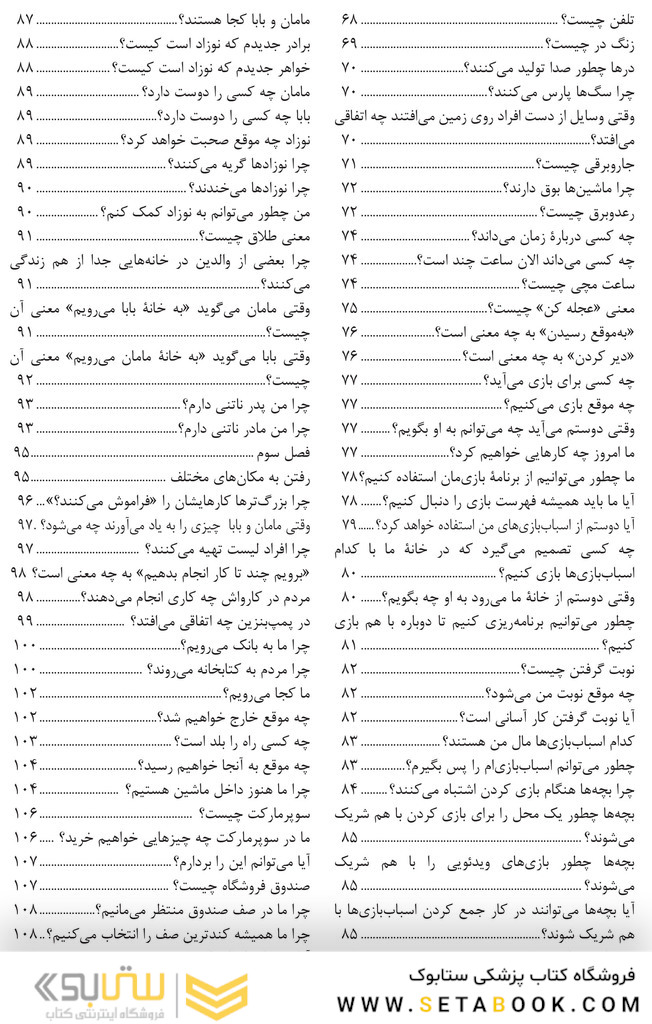 تلفن چیست؟ ........ ۶۸
زنگ در چیست؟ ........ ۶۹
درها چطور صدا تولید می‌کنند؟ ........ ۷۰
چرا سگ‌ها پارس می‌کنند؟ ........ ۷۰
وقتی وسایل از دست افراد روی زمین می‌افتند چه اتفاقی
می‌افتد؟ ........ ۷۰
جاروبرقی چیست؟ ........ ۷۱
چرا ماشین‌ها بوق دارند؟ ........ ۷۲
رعدوبرق چیست؟ ........ ۷۲
چه کسی دربارهٔ زمان می‌داند؟ ........ ۷۴
چه کسی می‌داند الان ساعت چند است؟ ........ ۷۴
ساعت مچی چیست؟ ........ ۷۴
معنی «عجله کن» چیست؟ ........ ۷۵
«به‌موقع رسیدن» به چه معنی است؟ ........ ۷۶
«دیر کردن» به چه معنی است؟ ........ ۷۶
چه کسی برای بازی می‌آید؟ ........ ۷۷
چه موقع بازی می‌کنیم؟ ........ ۷۷
وقتی دوستم می‌آید چه می‌توانم به او بگویم؟ ........ ۷۷
ما امروز چه کارهایی خواهیم کرد؟ ........ ۷۷
ما چطور می‌توانیم از برنامهٔ بازی‌مان استفاده کنیم؟ ۷۸
آیا ما باید همیشه فهرست بازی را دنبال کنیم؟ ........ ۷۸
آیا دوستم از اسباب‌بازی‌های من استفاده خواهد کرد؟ ...... ۷۹
چه کسی تصمیم می‌گیرد که در خانهٔ ما با کدام
اسباب‌بازی‌ها بازی کنیم؟ ........ ۸۰
وقتی دوستم از خانهٔ ما می‌رود به او چه بگویم؟ ........ ۸۰
چطور می‌توانیم برنامه‌ریزی کنیم تا دوباره با هم بازی
کنیم؟ ........ ۸۱
نوبت گرفتن چیست؟ ........ ۸۲
چه موقع نوبت من می‌شود؟ ........ ۸۲
آیا نوبت گرفتن کار آسانی است؟ ........ ۸۲
کدام اسباب‌بازی‌ها مال من هستند؟ ........ ۸۳
چطور می‌توانم اسباب‌بازی‌ام را پس بگیرم؟ ........ ۸۳
چرا بچه‌ها هنگام بازی کردن اشتباه می‌کنند؟ ........ ۸۴
بچه‌ها چطور یک محل را برای بازی کردن با هم شریک
می‌شوند؟ ........ ۸۵
بچه‌ها چطور بازی‌های ویدئویی را با هم شریک
می‌شوند؟ ........ ۸۵
آیا بچه‌ها می‌توانند در کار جمع کردن اسباب‌بازی‌ها با
هم شریک شوند؟ ........ ۸۵
مامان و بابا کجا هستند؟ ........ ۸۷
برادر جدیدم که نوزاد است کیست؟ ........ ۸۸
خواهر جدیدم که نوزاد است کیست؟ ........ ۸۸
مامان چه کسی را دوست دارد؟ ........ ۸۹
بابا چه کسی را دوست دارد؟ ........ ۸۹
نوزاد چه موقع صحبت خواهد کرد؟ ........ ۸۹
چرا نوزادها گریه می‌کنند؟ ........ ۸۹
چرا نوزادها می‌خندند؟ ........ ۹۰
من چطور می‌توانم به نوزاد کمک کنم؟ ........ ۹۰
معنی طلاق چیست؟ ........ ۹۱
چرا بعضی از والدین در خانه‌هایی جدا از هم زندگی
می‌کنند؟ ........ ۹۱
وقتی مامان می‌گوید «به خانهٔ بابا می‌رویم» معنی آن
چیست؟ ........ ۹۱
وقتی بابا می‌گوید «به خانهٔ مامان می‌رویم» معنی آن
چیست؟ ........ ۹۲
چرا من پدر ناتنی دارم؟ ........ ۹۳
چرا من مادر ناتنی دارم؟ ........ ۹۳
فصل سوم ........ ۹۵
رفتن به مکان‌های مختلف ........ ۹۵
چرا بزرگ‌ترها کارهایشان را «فراموش می‌کنند؟» ... ۹۶
وقتی مامان و بابا چیزی را به یاد می‌آورند چه می‌شود؟ . ۹۷
چرا افراد لیست تهیه می‌کنند؟ ........ ۹۷
«برویم چند تا کار انجام بدهیم» به چه معنی است؟ ۹۸
مردم در کارواش چه کاری انجام می‌دهند؟ ........ ۹۸
در پمپ‌بنزین چه اتفاقی می‌افتد؟ ........ ۹۹
چرا ما به بانک می‌رویم؟ ........ ۱۰۰
چرا مردم به کتابخانه می‌روند؟ ........ ۱۰۰
ما کجا می‌رویم؟ ........ ۱۰۲
چه موقع خارج خواهیم شد؟ ........ ۱۰۲
چه کسی راه را بلد است؟ ........ ۱۰۳
چه موقع به آنجا خواهیم رسید؟ ........ ۱۰۴
چرا ما هنوز داخل ماشین هستیم؟ ........ ۱۰۴
سوپرمارکت چیست؟ ........ ۱۰۶
ما در سوپرمارکت چه چیزهایی خواهیم خرید؟ .... ۱۰۶
آیا می‌توانم این را بردارم؟ ........ ۱۰۷
صندوق فروشگاه چیست؟ ........ ۱۰۷
چرا ما در صف صندوق منتظر می‌مانیم؟ ........ ۱۰۸
چرا ما همیشه کندترین صف را انتخاب می‌کنیم؟ .. ۱۰۸
فروشگاه کتاب پزشکی ستابوک
WWW.SETABOOK.COM
ستابوک
فروشگاه اینترنتی کتاب